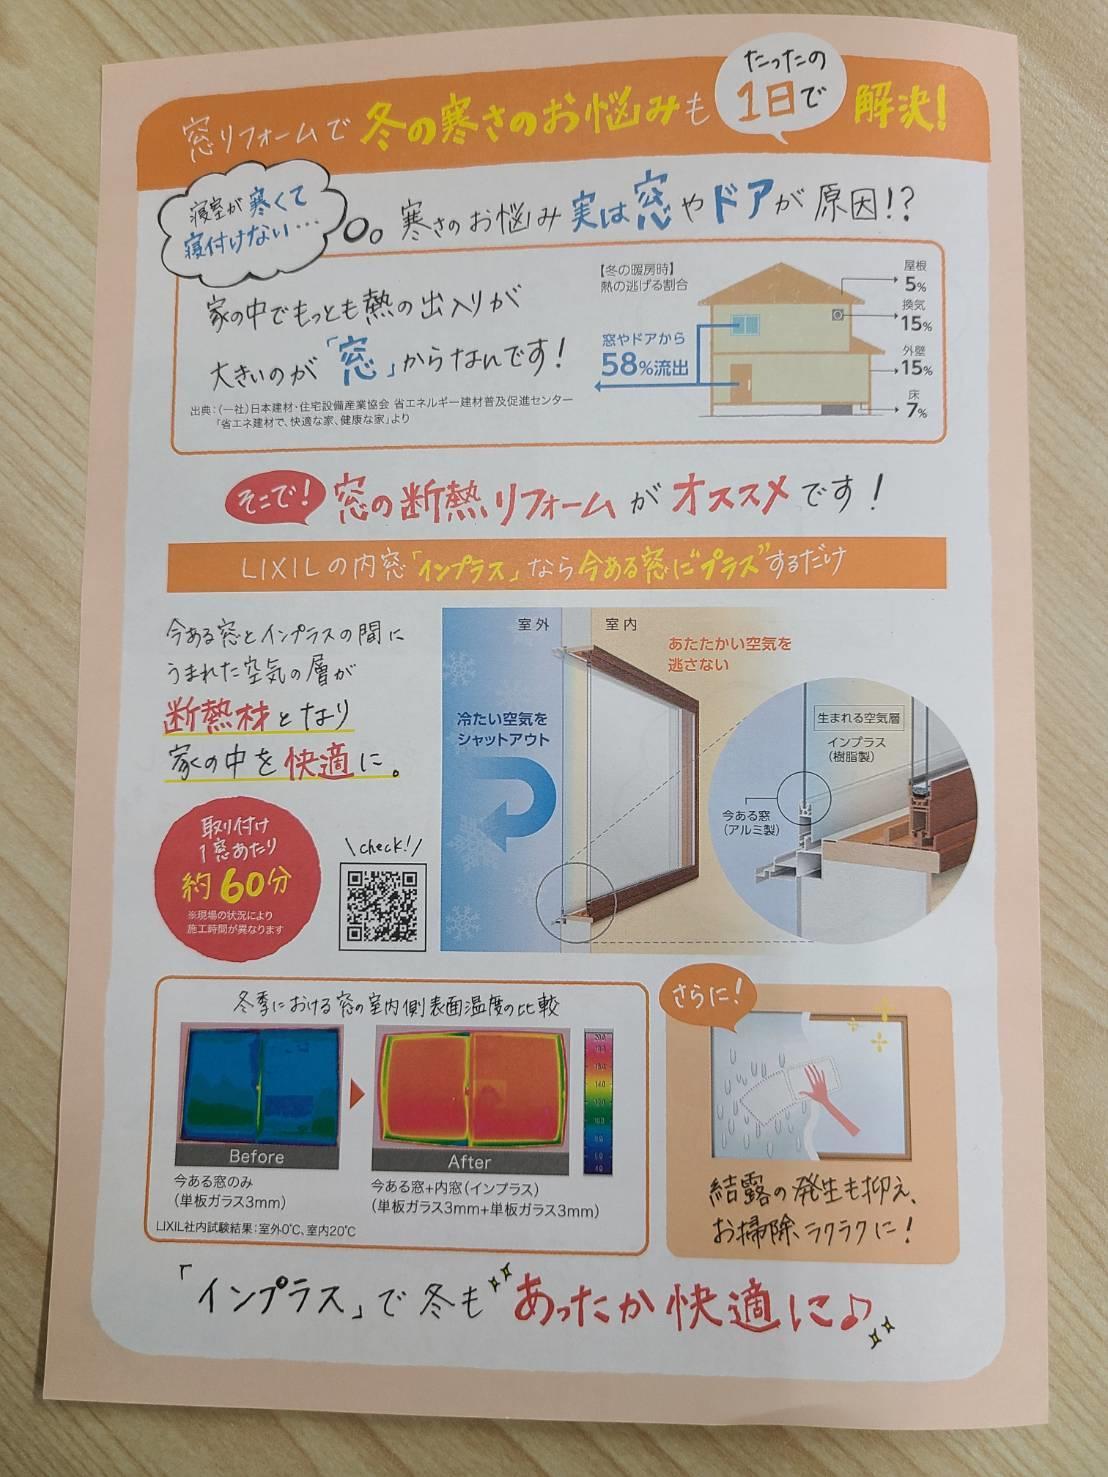 窓リフォームで冬の寒さのお悩みも
たったの
1日で
解決!
寝室が寒くて
寝付けない…
寒さのお悩み実は窓やドアが原因!?
家の中でもっとも熱の出入りが
大きいのが「窓」からなんです!
出典:(一社)日本建材・住宅設備産業協会 省エネルギー建材普及促進センター
「省エネ建材で、快適な家、健康な家」より
【冬の暖房時】
熱の逃げる割合
窓やドアから
58%流出
屋根
5%
換気
15%
外壁
15%
床
7%
そこで!
窓の断熱リフォームがオススメです!
LIXILの内窓「インプラス」なら今ある窓に"プラス"するだけ
今ある窓とインプラスの間に
うまれた空気の層が
断熱材となり
家の中を快適に。
取り付け
1窓あたり
約60分
※現場の状況により
施工時間が異なります
\check!/
室外
室内
あたたかい空気を
逃さない
冷たい空気を
シャットアウト
生まれる空気層
インプラス
(樹脂製)
今ある窓
(アルミ製)
冬季における窓の室内側表面温度の比較
Before
After
今ある窓のみ
(単板ガラス3mm)
今ある窓+内窓(インプラス)
(単板ガラス3mm+単板ガラス3mm)
LIXIL社内試験結果:室外0℃、室内20℃
さらに!
結露の発生も抑え、
お掃除、ラクラクに!
「インプラス」で冬もあったか快適に♪